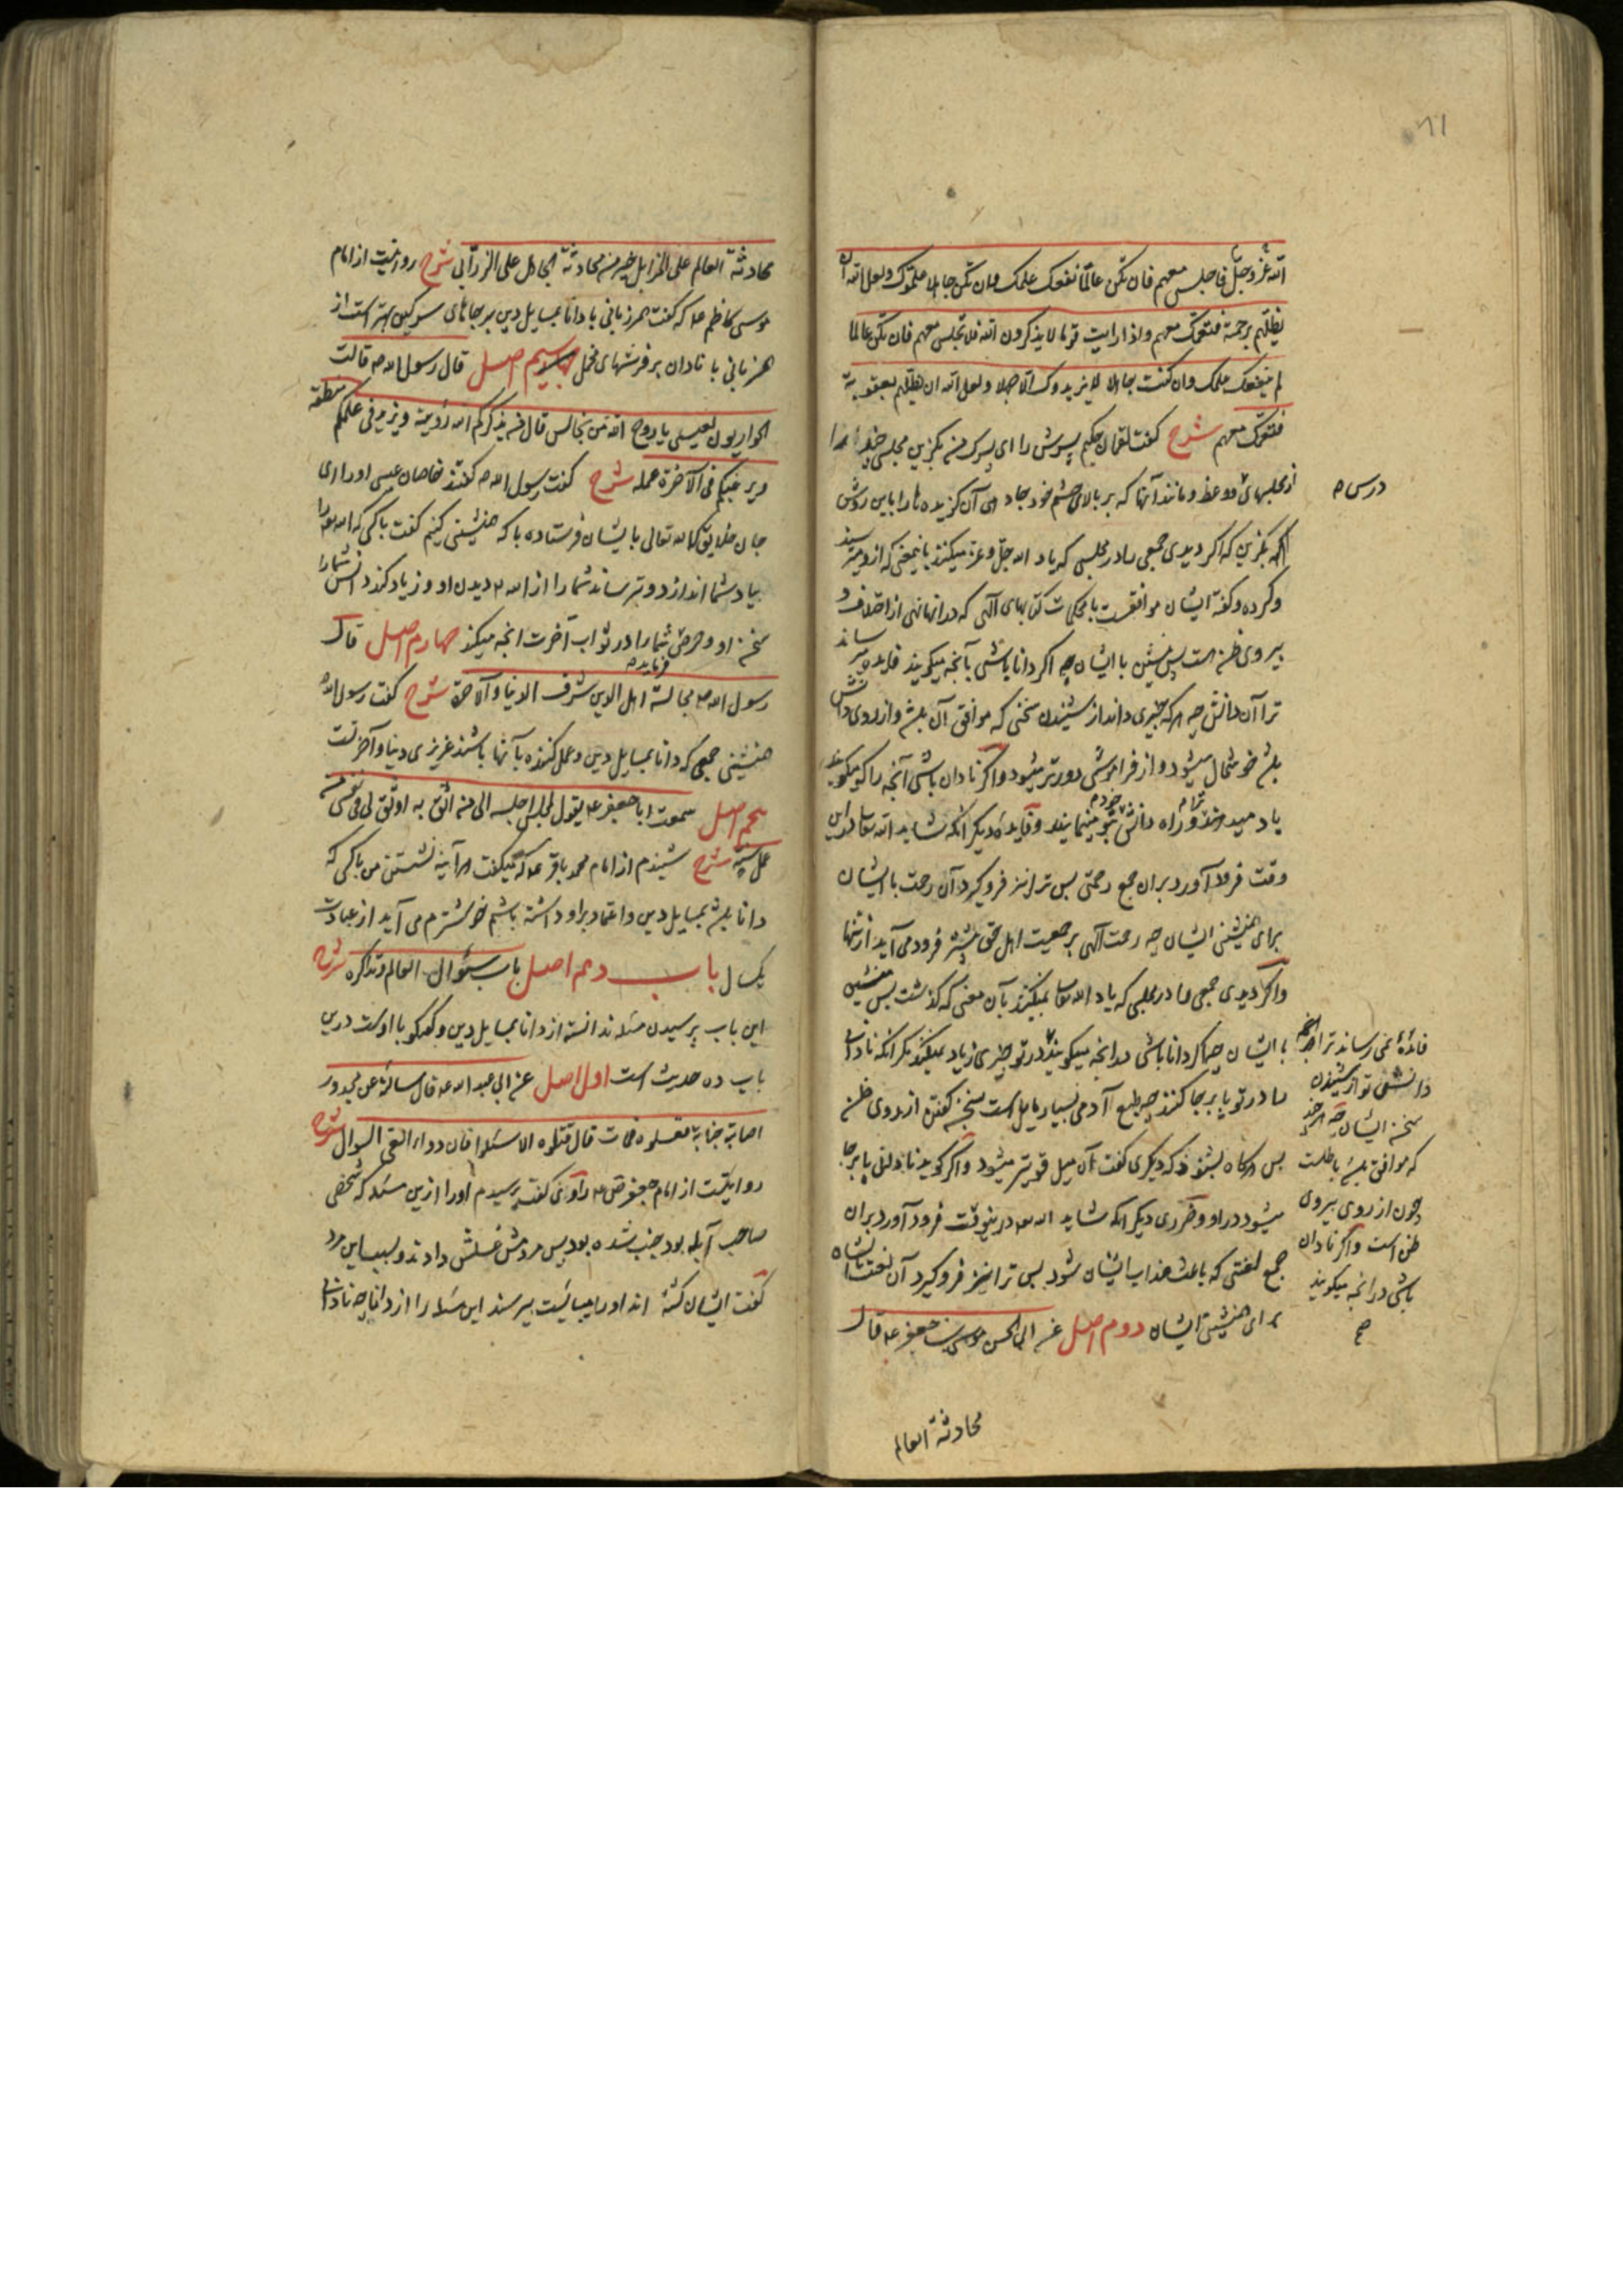 ۸۱
الله عز و جل فاجلس معهم فان تكن عالما نفعك علمك وان تكن جاهلا علموك ولعل الله ان
يظلهم برحمة فتعمك معهم واذا رايت قوما لا يذكرون الله فلا تجلس معهم فان تكن عالما
لم ينفعك علمك وان كنت جاهلا يزيدوك جهلا ولعل الله ان يظلهم بعقوبة
فتعمك معهم شرح گفت لقمان حکیم پسرش را ای پسرک من بگزین مجلسی چند را
از مجلسهای وعظ و مانند آنها که بر بالای چشم خود جا دهی آن گزیده ها را باین روش
درس ۵
که بگزین که اگر دیدی جمعی را در مجلسی که یاد الله جل و عز میکنند باینمعنی که از و میترسند
و کرده و گفته ایشان موافقست با محکمات کتابهای الهی که در آنها نهی از اختلاف و
پیروی ظن است پس بنشین با ایشان چه اگر دانا باشی بآنچه میگویند فایده میرساند
ترا آن دانش چه هر که چیزی داند از شنیدن سخنی که موافق آن باشد و از روی دانش
باشد خوشحال میشود و از فراموشی دورتر میشود و اگر نادان باشی آنچه را که میگویند
یاد میدهند ترا و راه دانش بتو مینمایند و فایده دیگر انکه شاید الله تعالی در این
وقت فرود آورد بران جمع رحمتی پس ترا نیز فروگیرد آن رحمت با ایشان
برای همنشینی ایشان چه رحمت الهی بر جمعیت اهل حق بیشتر فرود می آید از تنها
و اگر دیدی جمعی را در مجلسی که یاد الله تعالی نمیکنند بآن معنی که گذشت پس منشین
با ایشان چه اگر دانا باشی در انچه میگویند در تو چیزی زیاد نمیکنند مگر انکه نادانی
را در تو پابرجا کنند چه طبع آدمی بسیار مایل است بسخن گفتن از روی ظن
پس هرگاه بشنود که دیگری گفت آن میل قویتر میشود و اگر گوید نادانی پابرجا
میشود در او و ضرری دیگر انکه شاید الله تعالی در ینوقت فرود آورد بران
جمع لعنتی که باعث عذاب ایشان شود پس ترا نیز فروگیرد آن لعنت با ایشان
برای همنشینی ایشان دوم اصل عن ابی الحسن موسی بن جعفر ع قال
فائدهٔ نمی رساند ترا
دانش تو از شنیدن
سخن ایشان چه هر چند
که موافق باشد باطلست
چون از روی پیروی
ظن است و اگر نادان
باشی در انچه میگویند
صح
محادثة العالم
محادثة العالم على المزابل خير من محادثة الجاهل على الزرابي شرح روایتست از امام
موسی کاظم ع که گفت همزبانی با دانا بمسایل دین بر جاهای سرگین بهتر است از
همزبانی با نادان بر فرشهای مخمل سیم اصل قال رسول الله ص قالت
الحواريون لعيسى يا روح الله من نجالس قال من يذكركم الله رؤيته و يزيد في علمكم منطقه
و يرغبكم في الآخرة عمله شرح گفت رسول الله ص گفتند خاصان عیسی او را ای
جان خلایق که الله تعالی بایشان فرستاده با که همنشینی کنیم گفت با کسی که الله تعالی را
بیاد شما اندازد و بترساند شما را از الله تعالی دیدن او و زیاد کند دانش شما را
سخن او و حریص شما را در ثواب آخرت انچه میکند چهارم اصل قال
رسول الله ص مجالسة اهل الدين شرف الدنيا والآخرة شرح گفت رسول الله ص
همنشینی جمعی که دانا بمسایل دین و عمل کننده بآنها باشند عزیزی دنیا و آخرتست
پنجم اصل سمعت ابا جعفر ع يقول لمجلس اجلسه الى من اثق به اوثق في نفسي من
عمل سنة شرح شنیدم از امام محمد باقر ع که میگفت هر آینه نشستن من با کسی که
دانا باشد بمسایل دین و اعتماد براو داشته باشم خوشترم می آید از عبادت
یکسال باب دهم اصل باب سؤال العالم وتذاكره شرح
این باب پرسیدن مسئله ندانسته از دانا بمسایل دین و گفتگو با اوست درین
باب ده حدیث است اول اصل عن ابي عبد الله ع قال سالته عن مجدور
اصابته جنابة فغسلوه فمات قال قتلوه الا سئلوا فان دواء العي السؤال شرح
روایتست از امام جعفر ص ع راوی گفت پرسیدم او را ازین مسئله که شخصی
صاحب آبله بود جنب شده بود پس مردمش غسلش دادند و بسبب این مرد
گفت ایشان کشته اند او را میبایست پرسند این مسئله را از دانا چه نادانی